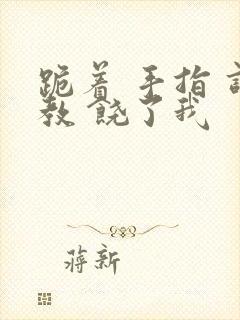 跪着 手指 
教 饶了我
蒋新